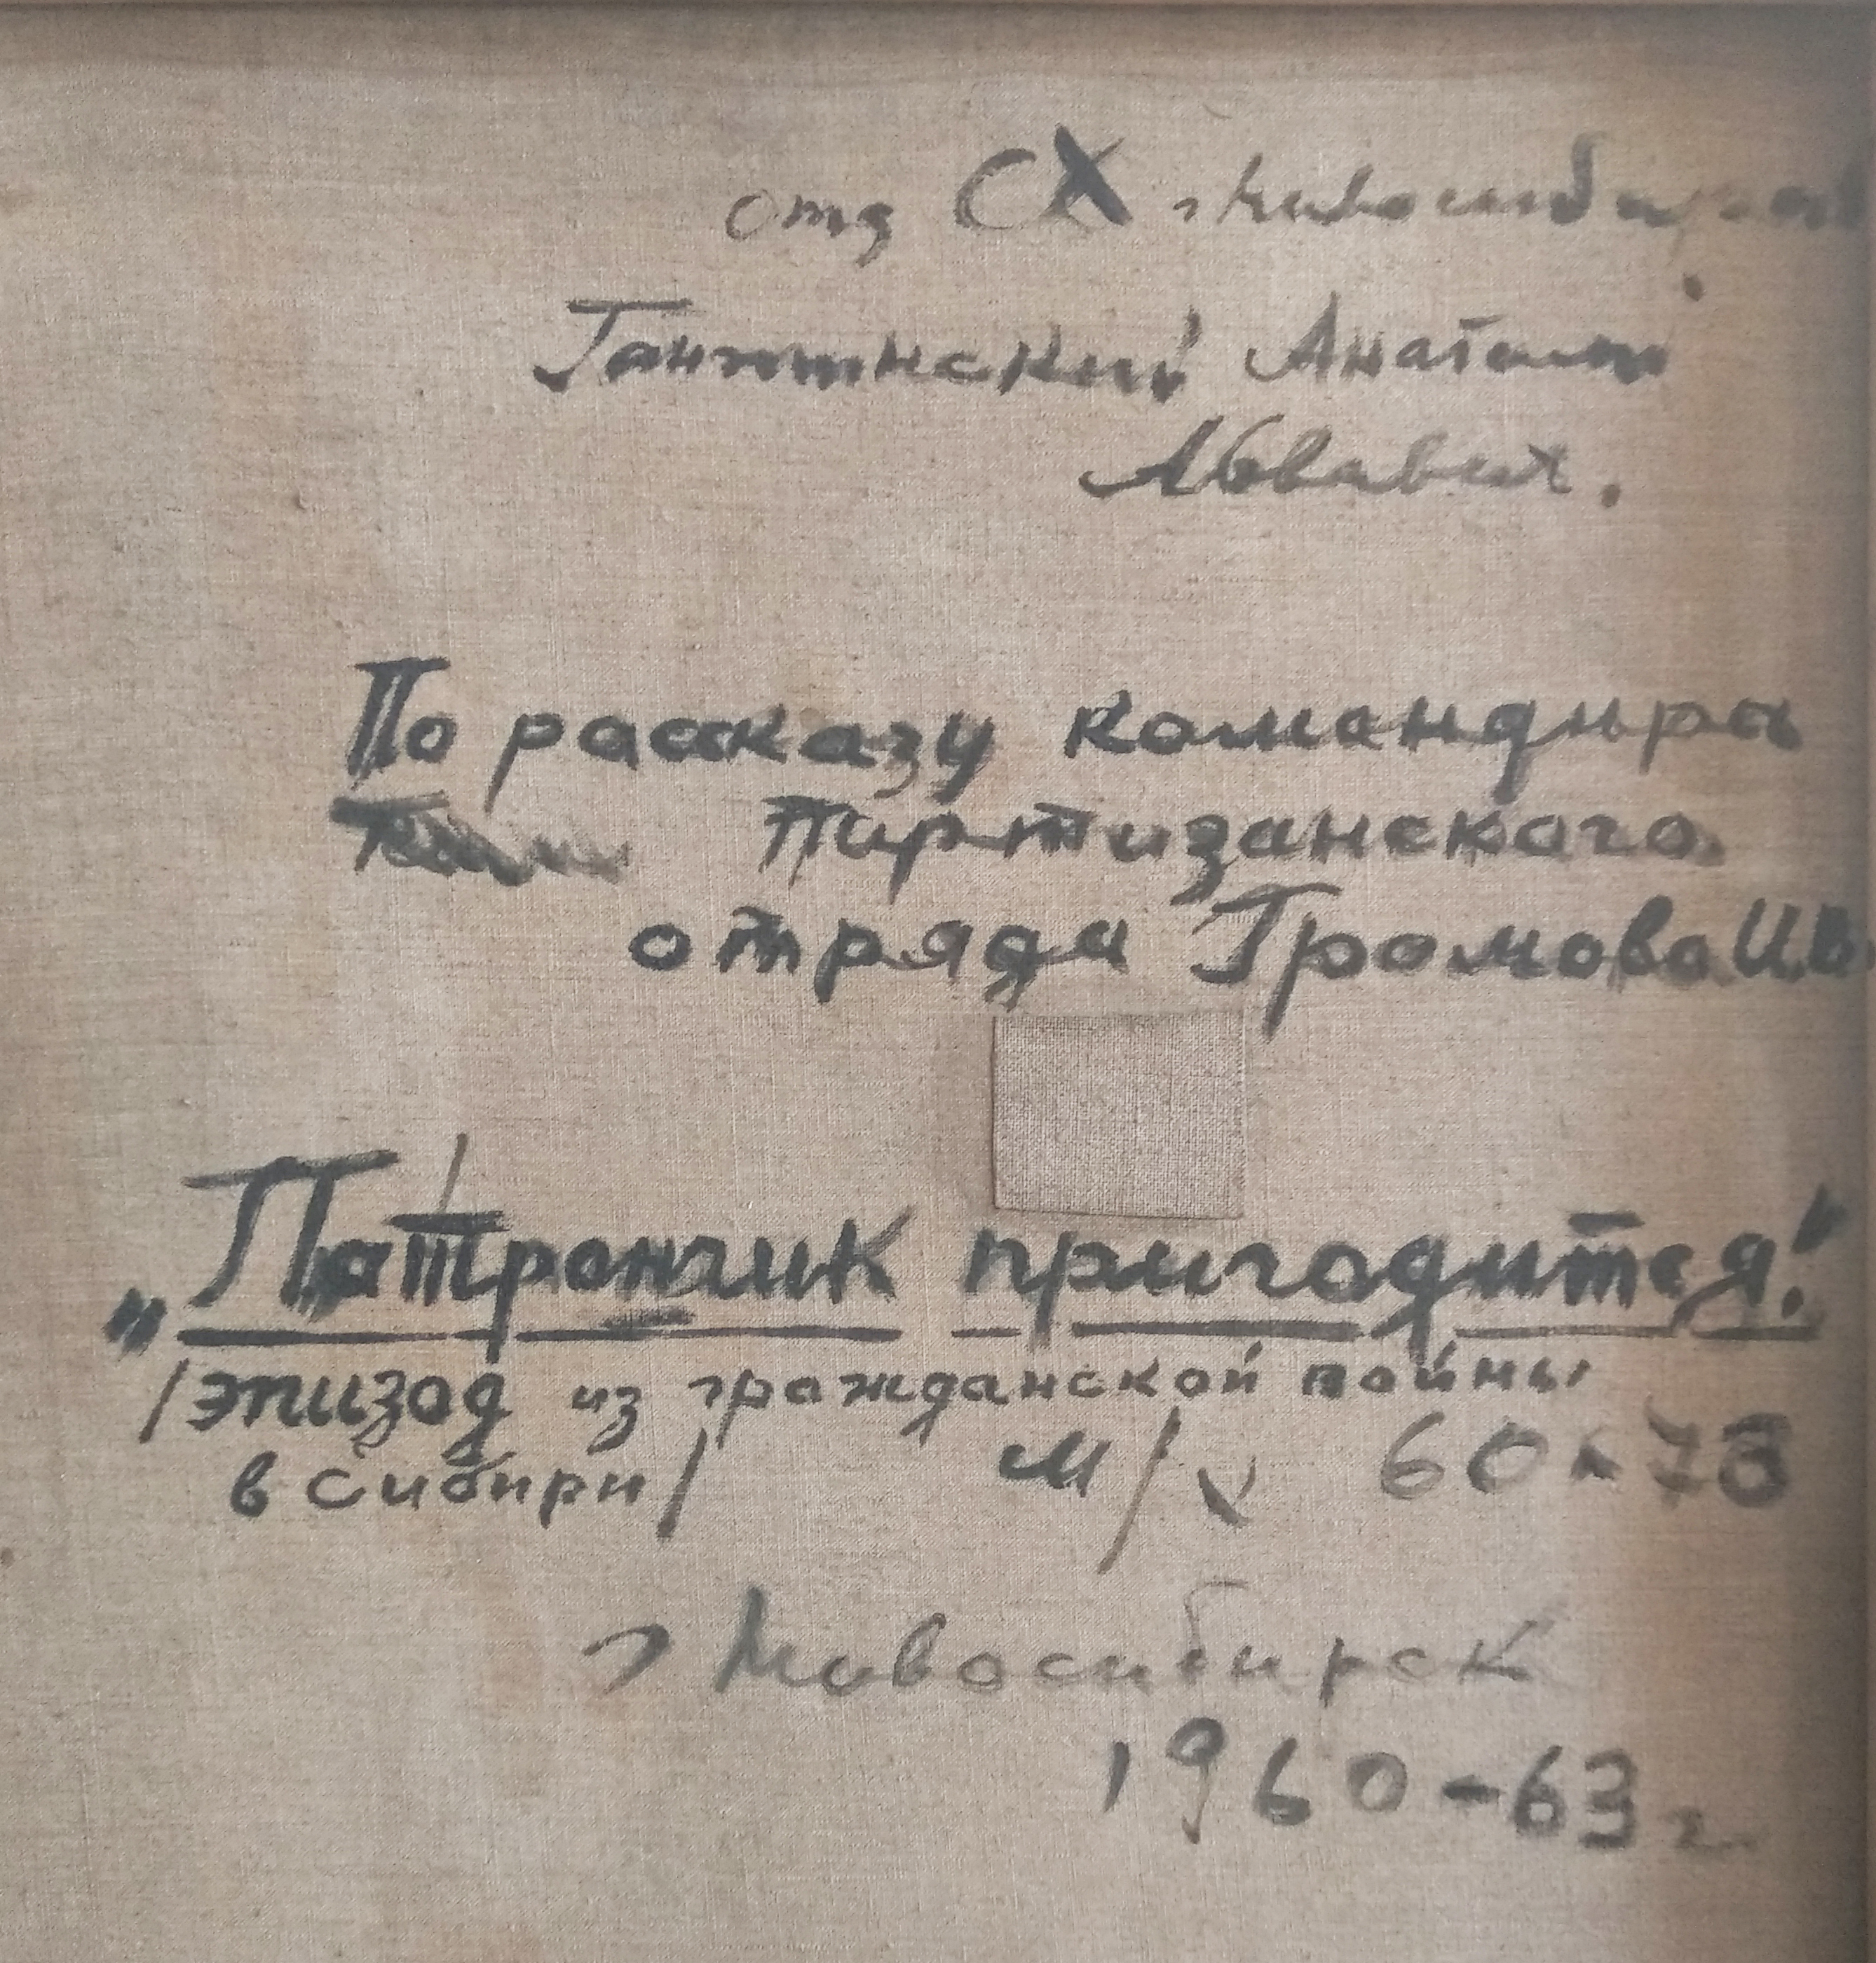 отд СХ г Новосибирск
Анатолий
Львович.
По рассказу командира
партизанского
отряда Громова И.В.
„Патрончик пригодится!"
/эпизод из гражданской войны
в Сибири/ м/х 60×73
г Новосибирск
1960-63 г